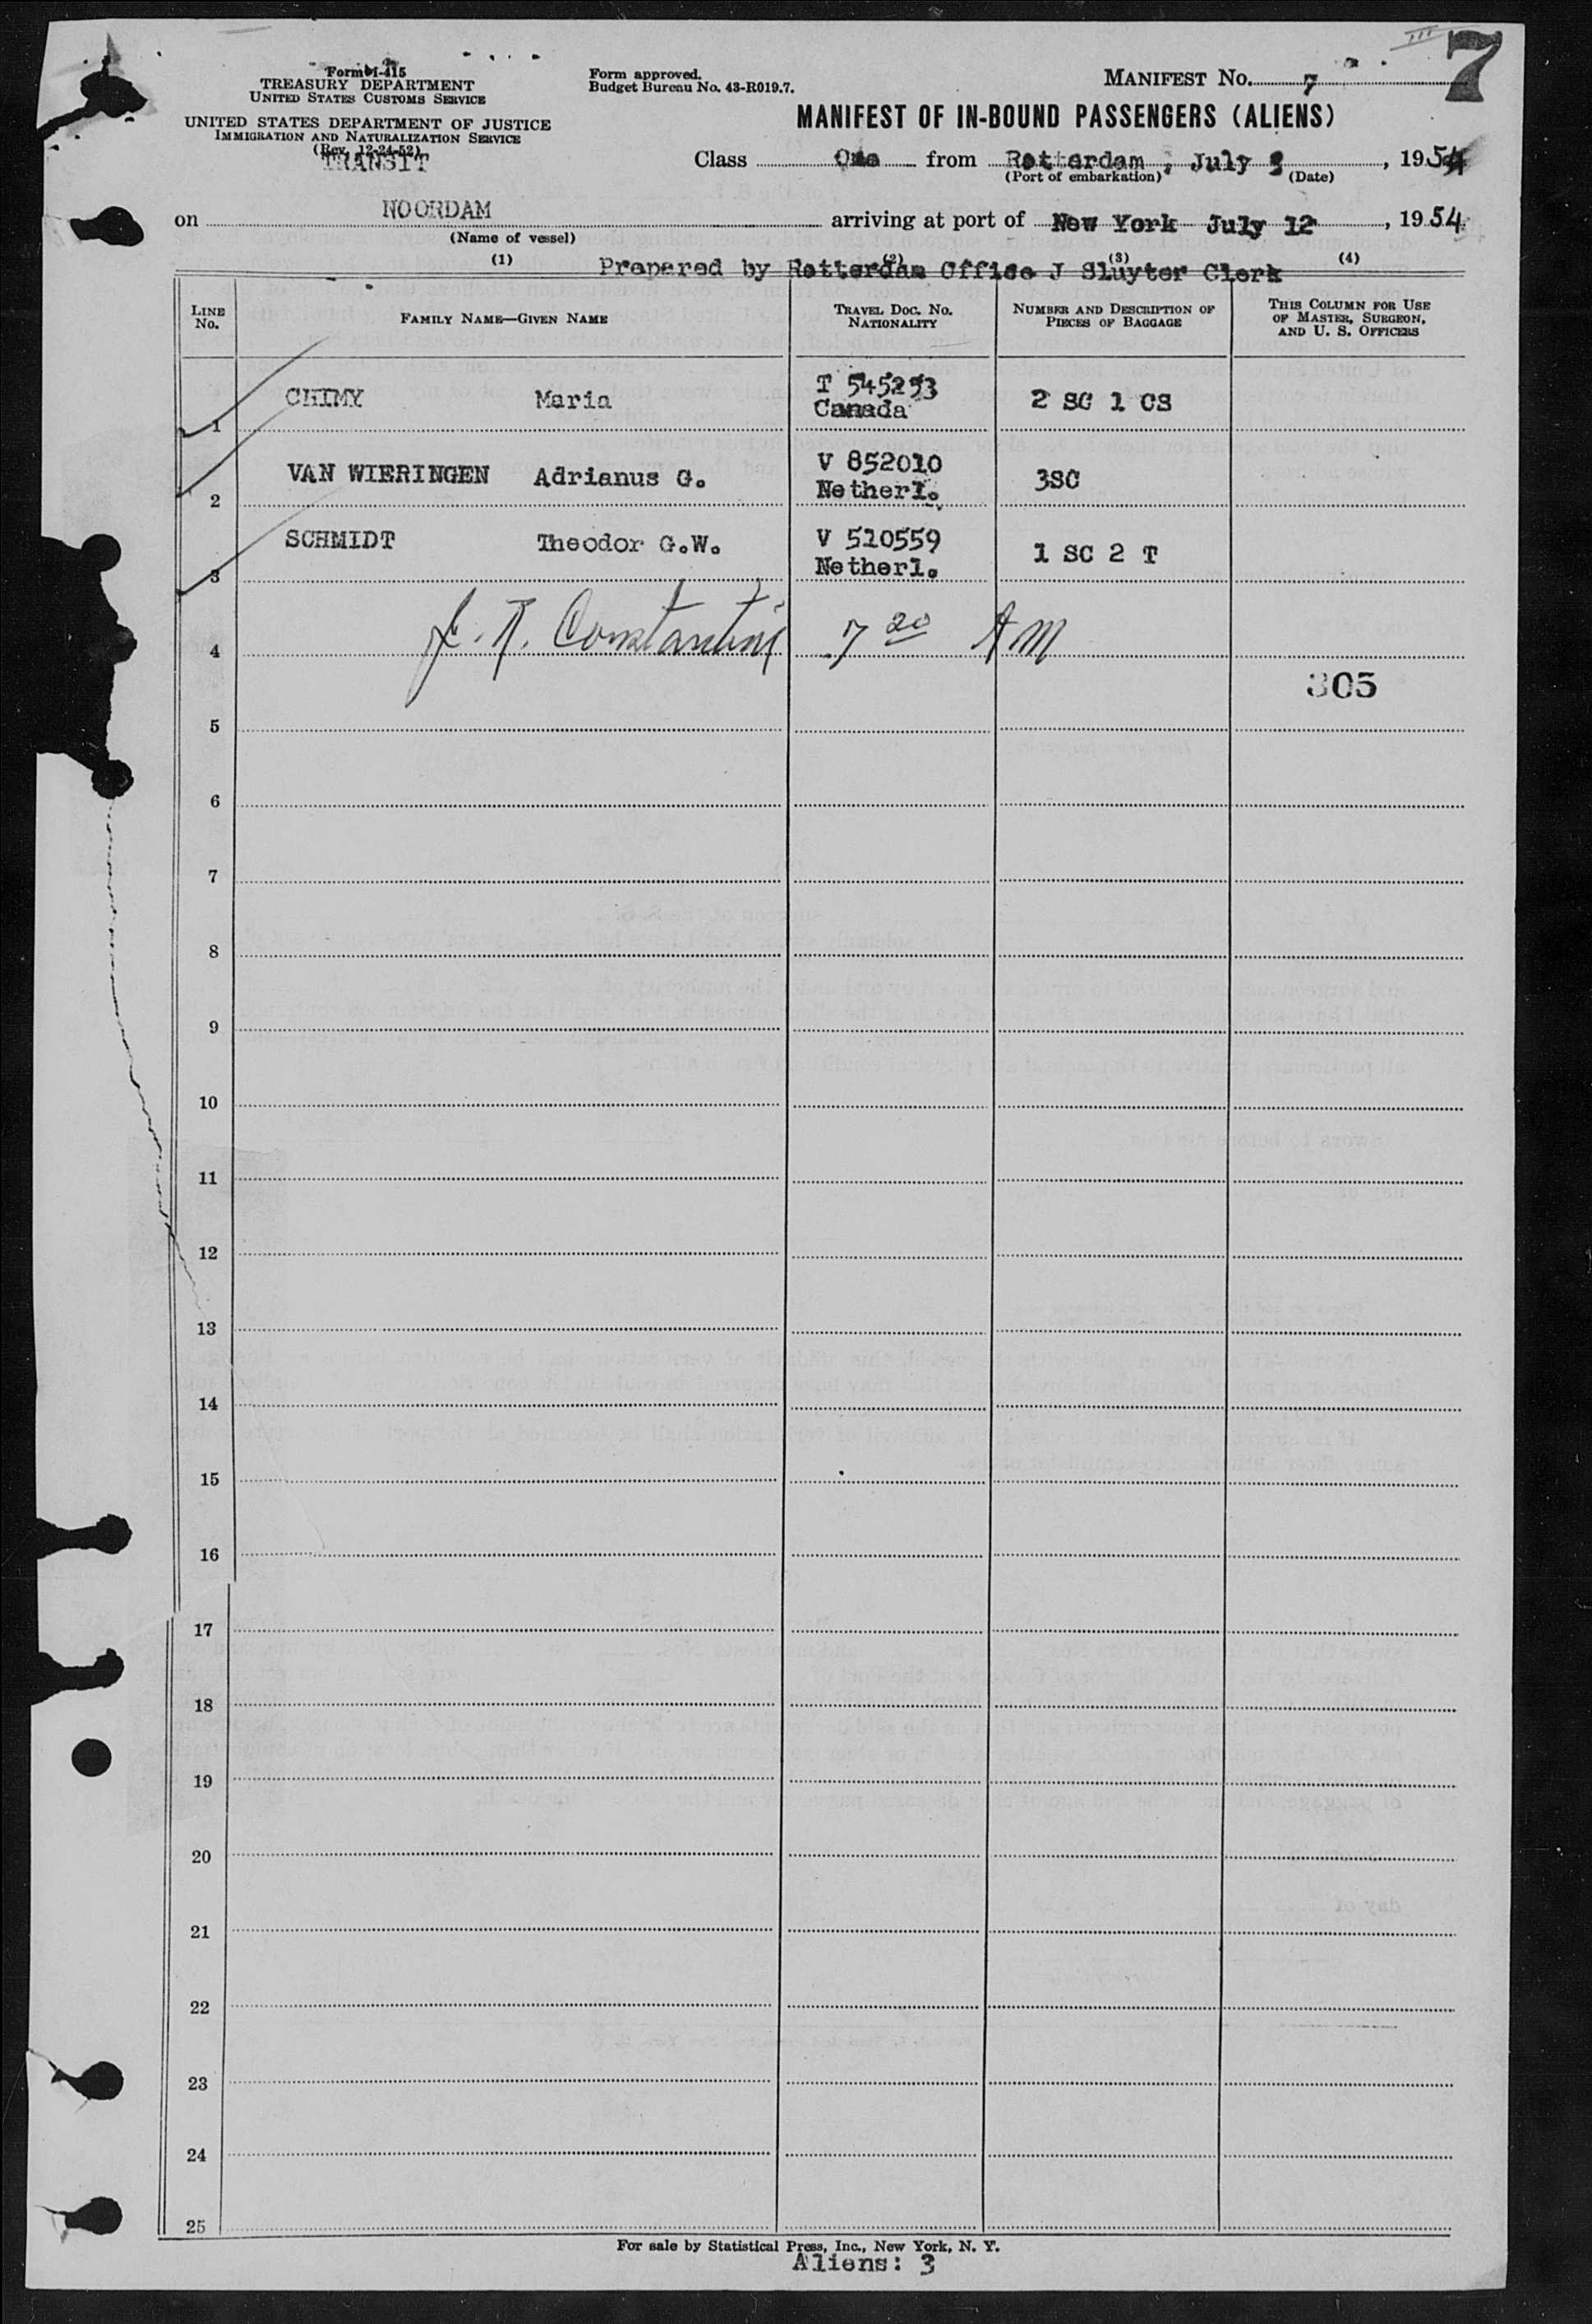 III
7
Form I-415
TREASURY DEPARTMENT
UNITED STATES CUSTOMS SERVICE
UNITED STATES DEPARTMENT OF JUSTICE
IMMIGRATION AND NATURALIZATION SERVICE
(Rev. 12-24-52)
TRANSIT
Form approved.
Budget Bureau No. 43-R019.7.
MANIFEST NO. 7
MANIFEST OF IN-BOUND PASSENGERS (ALIENS)
Class One from Rotterdam, July , 1954
(Port of embarkation) (Date)
on NOORDAM arriving at port of New York July 12, 1954
(Name of vessel)
(1) (2) (3) (4)
Prepared by Rotterdam Office J Sluyter Clerk
LINE No. FAMILY NAME—GIVEN NAME TRAVEL DOC. NO. NATIONALITY NUMBER AND DESCRIPTION OF PIECES OF BAGGAGE THIS COLUMN FOR USE OF MASTER, SURGEON, AND U. S. OFFICERS
1 CHIMY Maria T 545253 Canada 2 SC 1 CS
2 VAN WIERINGEN Adrianus G. V 852010 Netherl. 3SC
3 SCHMIDT Theodor G.W. V 510559 Netherl. 1 SC 2 T
4 J. R. Constantine 7 20 AM
305
5
6
7
8
9
10
11
12
13
14
15
16
17
18
19
20
21
22
23
24
25
For sale by Statistical Press, Inc., New York, N. Y.
Aliens: 3